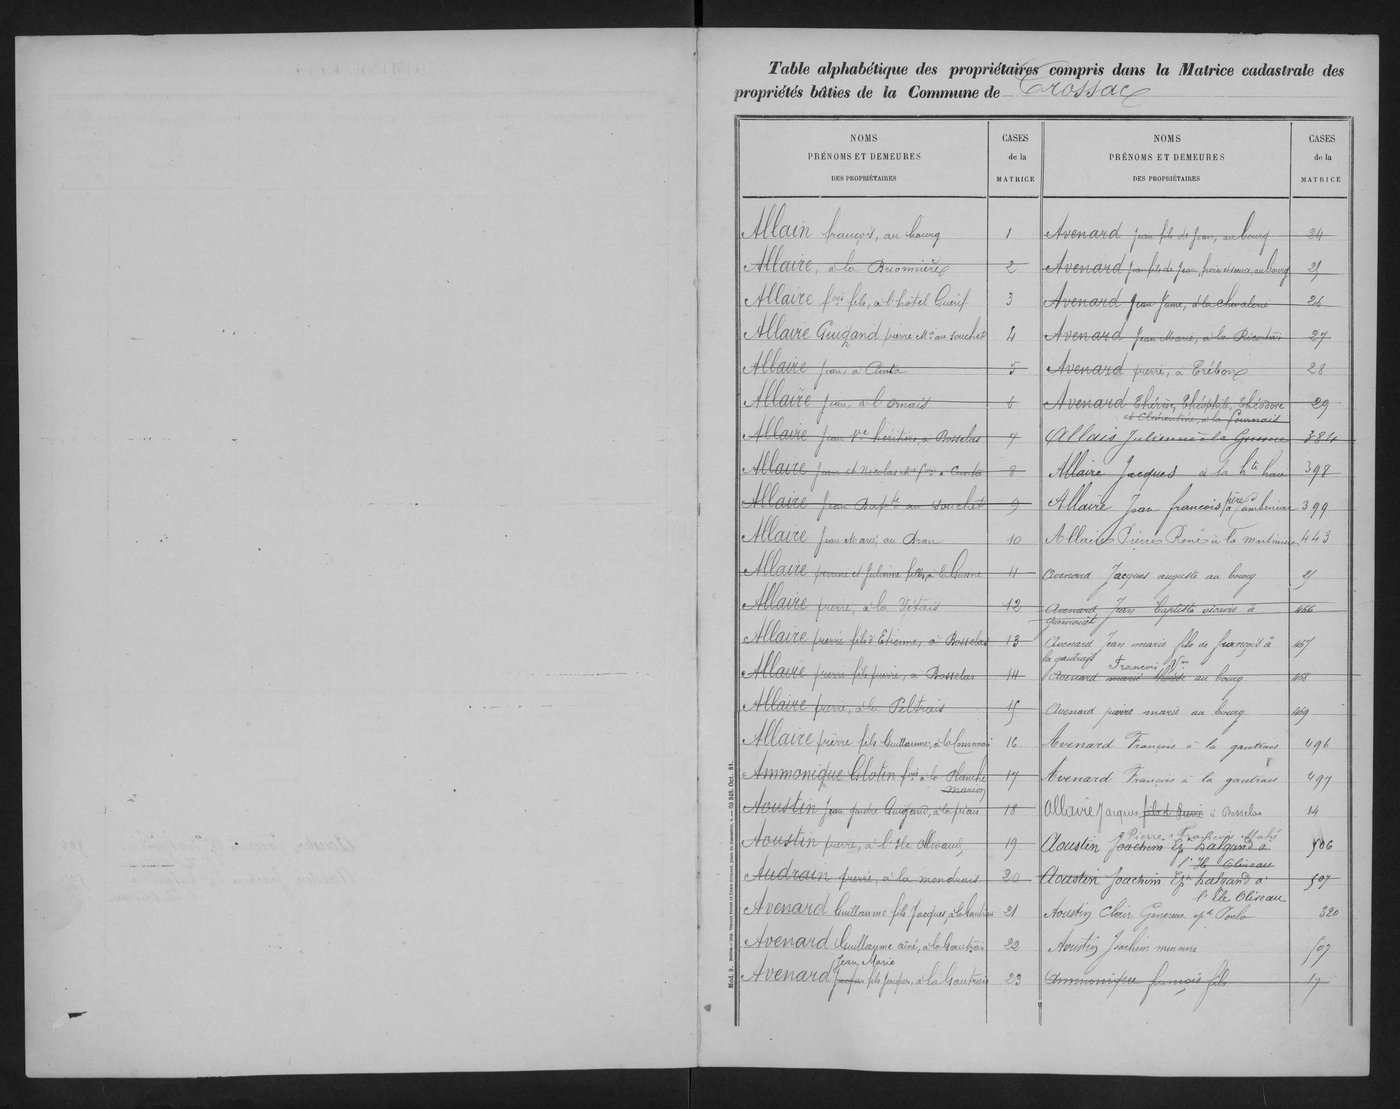 Table alphabétique des propriétaires compris dans la Matrice cadastrale des
propriétés bâties de la Commune de Crossac
NOMS
PRÉNOMS ET DEMEURES
DES PROPRIÉTAIRES
CASES
de la
MATRICE
Allain françois, au bourg 1
Allaire, à la Buonnière 2
Allaire fois fils, à l'hôtel Guérif 3
Allaire Guigand pierre Mie au Souchet 4
Allaire Jean, à Cunta 5
Allaire Jean, à l'Ornais 6
Allaire Jean Vve héritiers à Bosselas 7
Allaire Jean et Nicolas à Cunta 8
Allaire Jean Bapte au Souchet 9
Allaire Jean Marie, au Bran 10
Allaire perrine et Julienne 11
Allaire pierre, à la Vétais 12
Allaire pierre fils d'Etienne, à Bosselas 13
Allaire pierre fils pierre, à Bosselas 14
Allaire pierre, à la Peltrais 15
Allaire pierre fils Guillaume, à la 16
Ammonique Glotin fois à la Planche 17
Marion
Aoustin Jean gendre Guigand, à la 18
Aoustin pierre, à l'Ile Olivaud 19
Audrain pierre, à la mondrais 20
Avenard Guillaume fils Jacques, à la Gautrais 21
Avenard Guillaume aîné, à la Gautrais 22
Jean Marie
Avenard Jacques fils Jacques, à la Gautrais 23
NOMS
PRÉNOMS ET DEMEURES
DES PROPRIÉTAIRES
CASES
de la
MATRICE
Avenard Jean fils de Jean, au bourg 24
Avenard Jean fils de Jean, frère et soeurs, au bourg 25
Avenard Jean Jeune, à la chevalerie 26
Avenard Jean Marie, à la Ricordais 27
Avenard pierre, à Trébou 28
Avenard Thérèse, Théophile, Théodore 29
et Clémentine, à la Fournais
Allais Julienne à la 384
Allaire Jacques à la hte 398
père
Allaire Jean françois à 399
Allaire Pierre René à la Martinais 443
Avenard Jacques auguste au bourg 25
Avenard Jean Baptiste vicaire à 466
guenrouët
Avenard Jean marie fils de françois à 467
la gautrais
François
Avenard marie au bourg 468
Avenard pierre marie au bourg 469
Avenard François à la gautrais 496
Avenard François à la gautrais 497
Allaire Jacques fils de Pierre à Bosselas 14
Pierre François Mahé
Aoustin Joachim Ep Lalgand à 506
l'Ile Oliseau
Aoustin Joachim Ep Lalgand à 507
l'Ile Oliseau
Aoustin Clair 320
Aoustin Joachim mineure 507
Ammonique françois fils 17
Mod. 9.